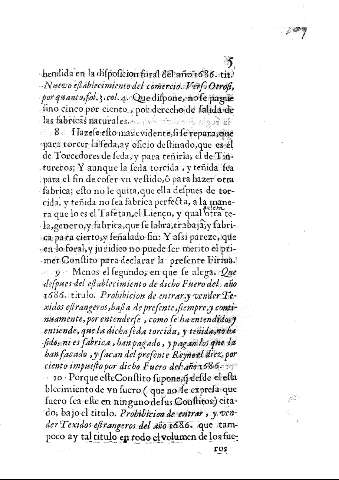 5
hendida en la disposicion foral del año 1686. tit.
Nuevo establecimiento del comercio. Vers. Otrosi,
por quanto, fol. 3. col. 4. Que dispone, no se pague
sino cinco por ciento, por derecho de salida de
las fabricas naturales.
8 Hazese esto mas evidente, si se repara, que
para torcer la seda, ay oficio destinado, que es èl
de Torcedores de seda, y para teñirla, el de Tin-
tureros; Y aunque la seda torcida, y teñida sea
para el fin de coser vn vestido, ò para hazer otra
fabrica; esto no le quita, que ella despues de tor-
cida, y teñida no sea fabrica perfecta, a la mane-
ra que lo es el Tafetan, el Lienço, y qual otra te-
la, genero, y fabrica, que se labra, trabaja, y fabri-
ca para cierto, y señalado fin: Y assi parece, que
en lo foral, y juridico no puede ser merito el pri-
mer Constito para declarar la presente Firma.
9 Menos el segundo, en que se alega. Que
despues del establecimiento de dicho Fuero del año
1686. titulo. Prohibicion de entrar, y vender Te-
xidos estrangeros, hasta de presente, siempre, y conti-
nuamente, por entenderse, como se ha entendido, y
entiende, que la dicha seda torcida, y teñida, no ha
sido, ni es fabrica, han pagado, y pagan los que la
han sacado, y sacan del presente Reyno el diez por
ciento impuesto por dicho Fuero del año 1686.
10 Porque este Constito supone, q̃ desde el esta
blecimiento de vn fuero (que no se expresa que
fuero sea este en ninguno de sus Constitos) cita-
do, bajo el titulo. Prohibicion de entrar, y ven-
der Texidos estrangeros del año 1686. que tam-
poco ay tal titulo en todo el volumen de los fue-
ros